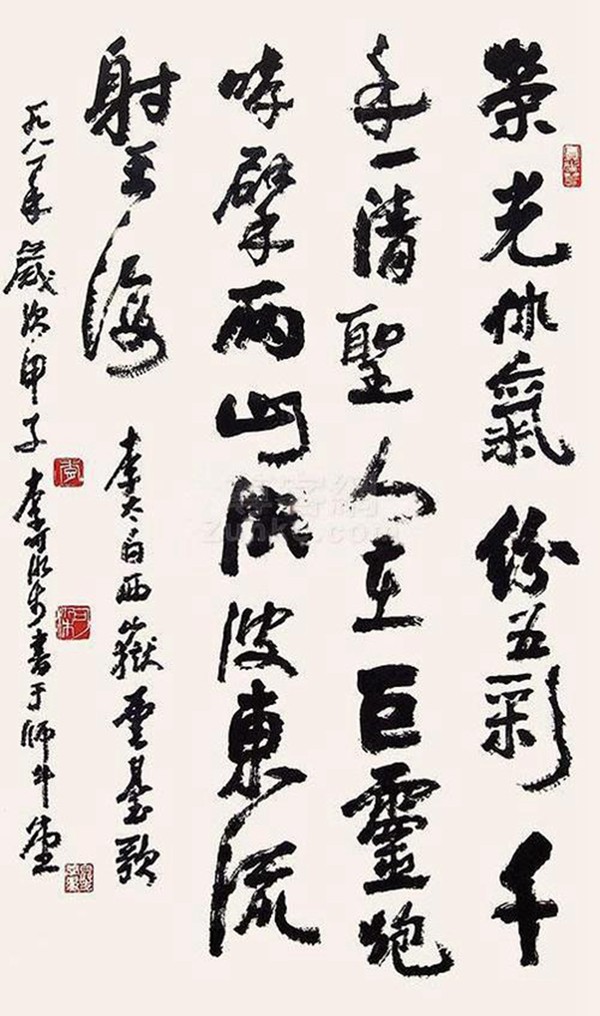 榮光休氣紛五彩千
年一清聖人在巨靈咆
哮擘兩山洪波東流
射海
李太白西嶽雲臺歌
一九八四年歲次甲子李可染書于師牛堂
李
可染
zunke.com